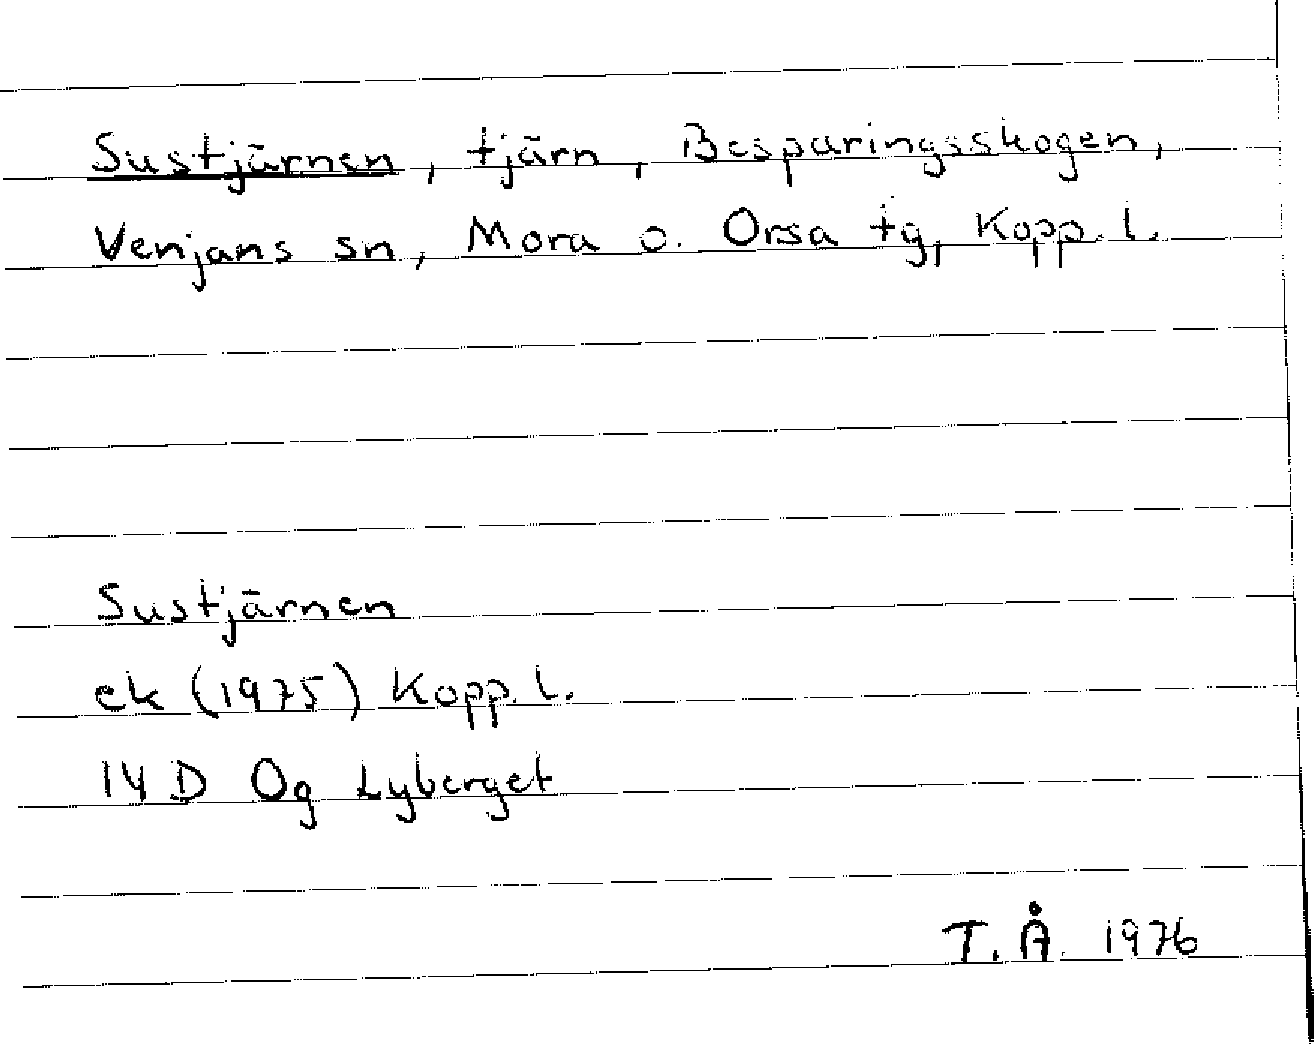 Sustjärnen, tjärn, Besparingsskogen,
Venjans sn, Mora o. Orsa tg, Kopp. l.
Sustjärnen
ek (1975) Kopp. l.
14 D 0g Lyberget
T. Å. 1976